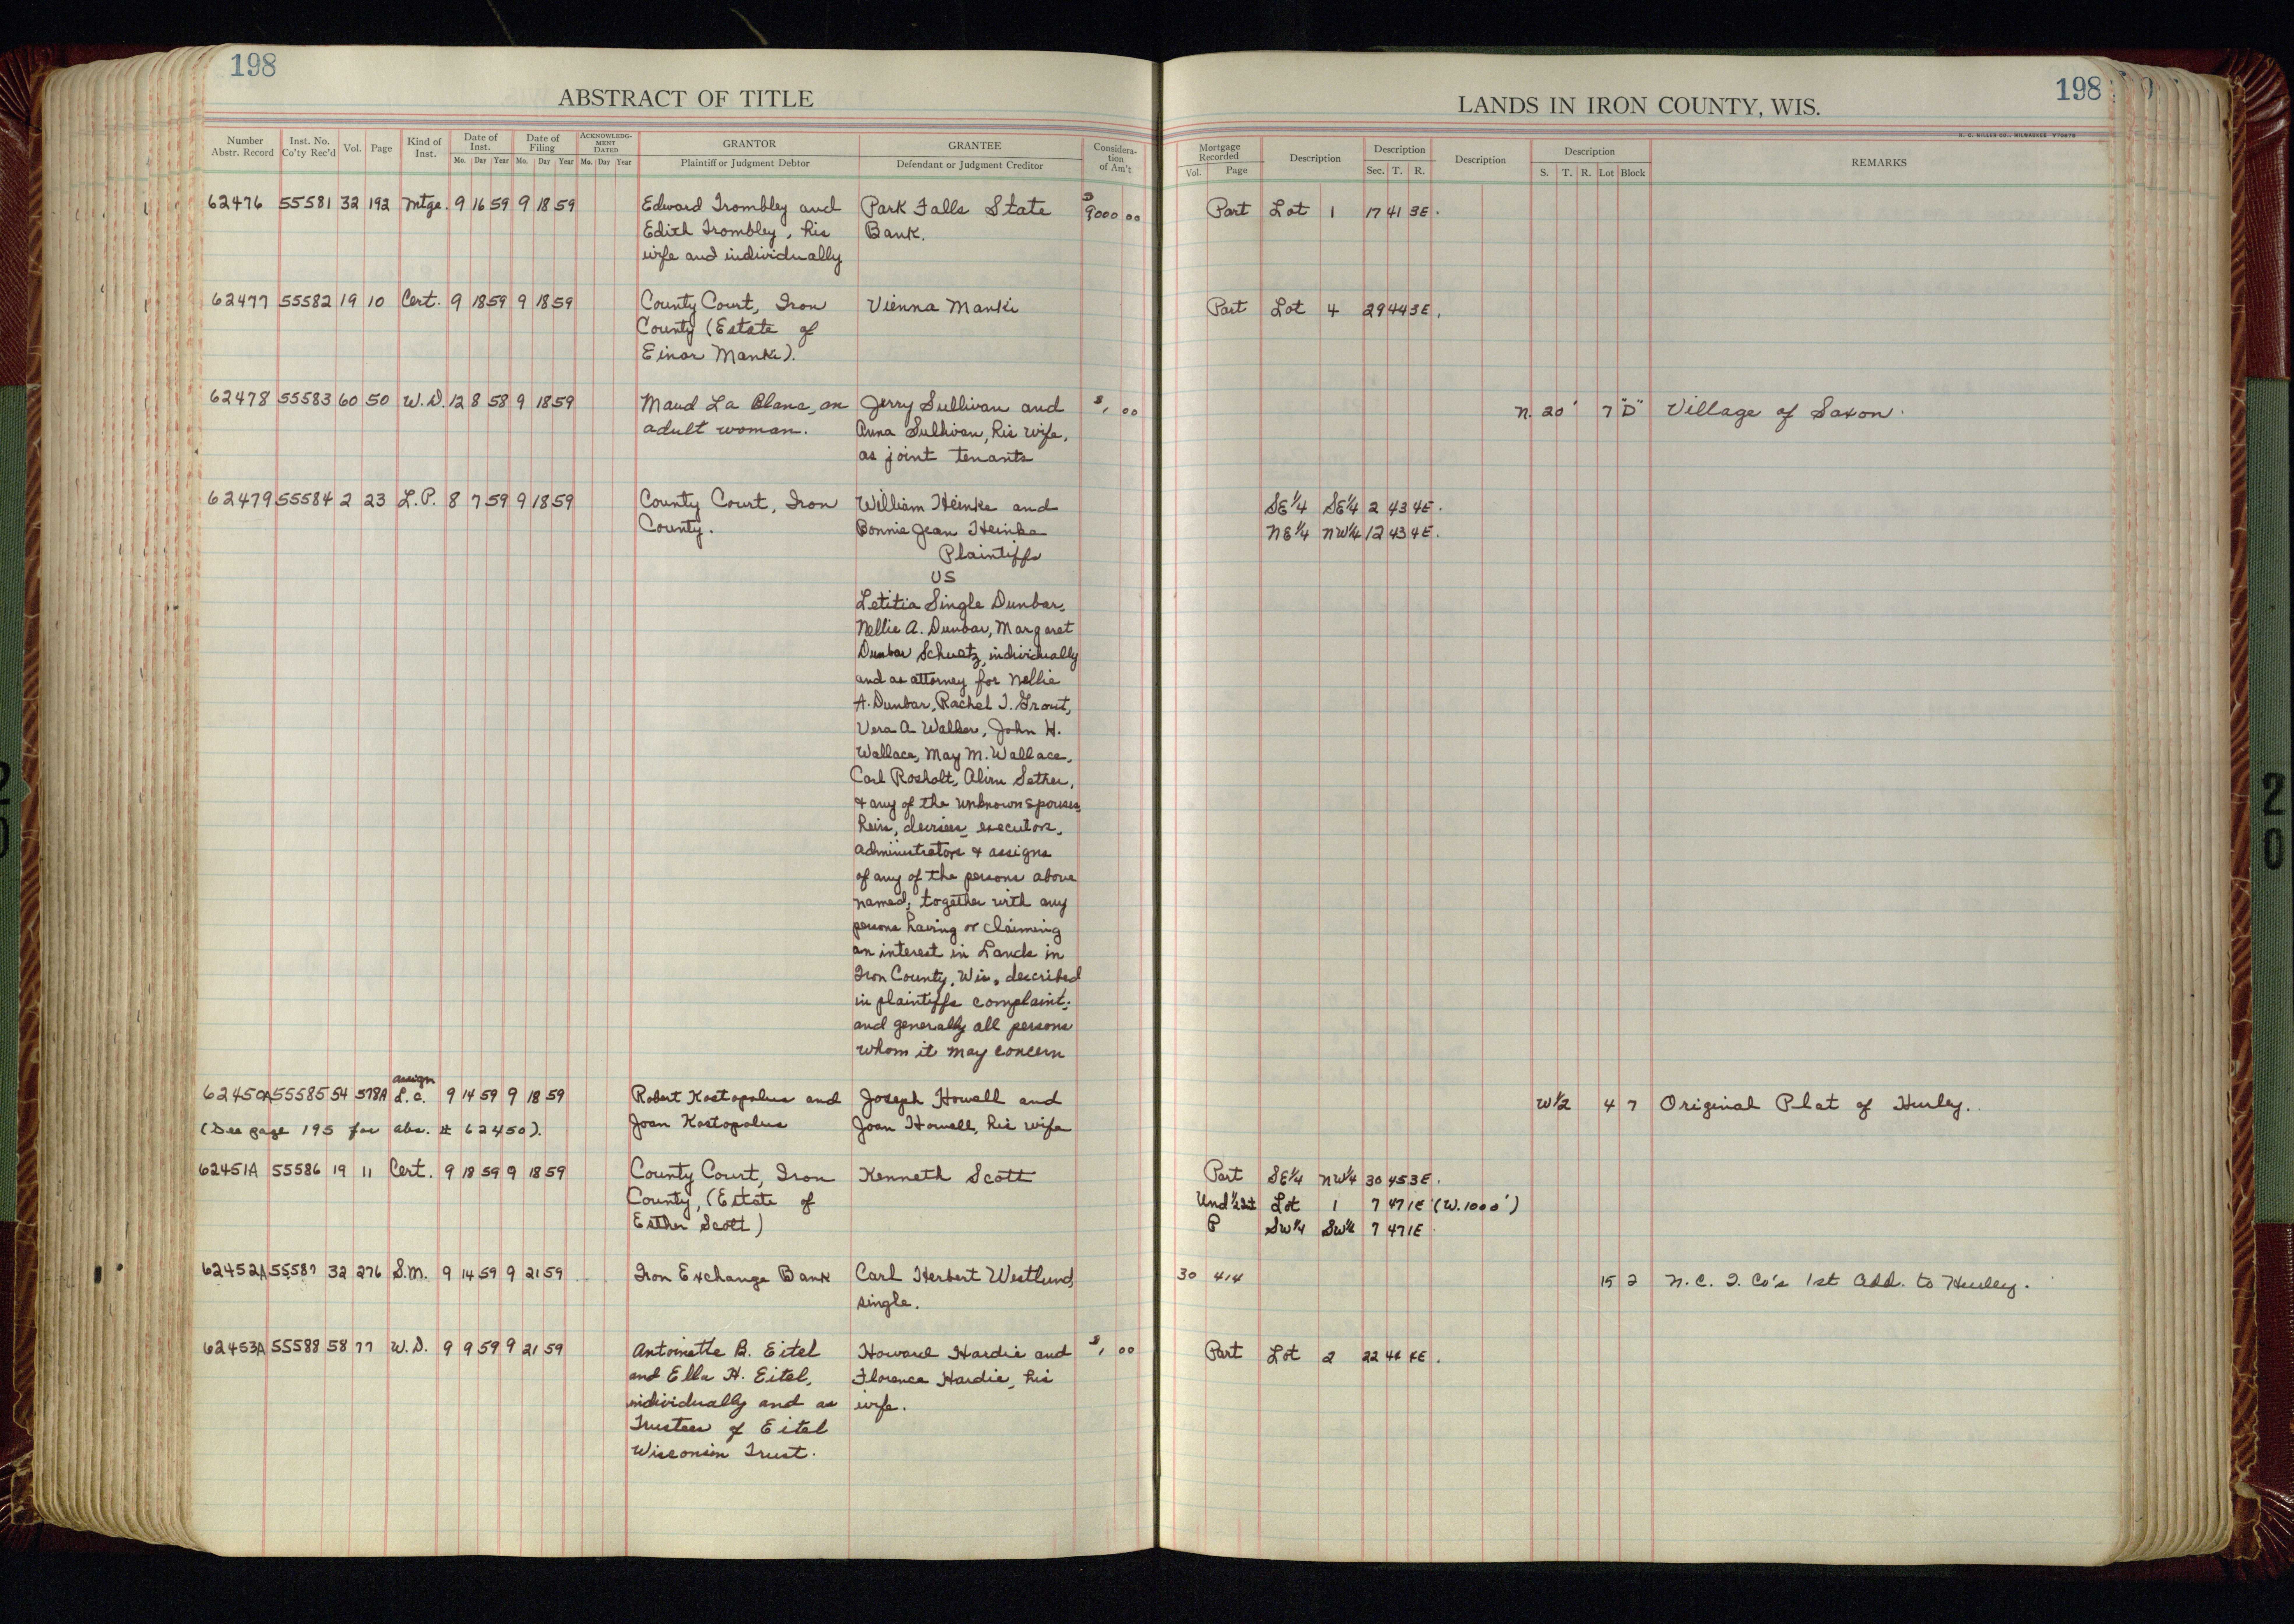 198
ABSTRACT OF TITLE
Number Abstr. Record | Inst. No. Co'ty Rec'd | Vol. | Page | Kind of Inst. | Date of Inst. Mo. Day Year | Date of Filing Mo. Day Year | ACKNOWLEDGMENT DATED Mo. Day Year | GRANTOR Plaintiff or Judgment Debtor | GRANTEE Defendant or Judgment Creditor | Consideration of Am't
62476 55581 32 192 Mtge. 9 16 59 9 18 59 Edward Trombley and Park Falls State $9000 00
Edith Trombley, his Bank.
wife and individually
62477 55582 19 10 Cert. 9 18 59 9 18 59 County Court, Iron Vienna Manki
County (Estate of
Einar Manki).
62478 55583 60 50 W.D. 12 8 58 9 18 59 Maud La Blanc, an Jerry Sullivan and $1 00
adult woman. Anna Sullivan, his wife,
as joint tenants
62479 55584 2 23 L.P. 8 7 59 9 18 59 County Court, Iron William Heinke and
County. Bonnie Jean Heinke
Plaintiffs
VS
Letitia Single Dunbar,
Nellie A. Dunbar, Margaret
Dunbar Schwetz, individually
and as attorney for Nellie
A. Dunbar, Rachel T. Grout,
Vera A Walker, John H.
Wallace, May M. Wallace,
Carl Rosholt, Sether,
& any of the unknown spouses,
heirs, devisees, executors,
administrators & assigns
of any of the persons above
named, together with any
persons having or claiming
an interest in Lands in
Iron County, Wis. described
in plaintiffs complaint;
and generally all persons
whom it may concern
assign
62450A 55585 54 578A L.C. 9 14 59 9 18 59 Robert Kostopolus and Joseph Howell and
(See page 195 for abs. # 62450). Joan Kostopolus Joan Howell, his wife
62451A 55586 19 11 Cert. 9 18 59 9 18 59 County Court, Iron Kenneth Scott
County, (Estate of
Esther Scott)
62452A 55587 32 276 S.M. 9 14 59 9 21 59 Iron Exchange Bank Carl Herbert Westlund,
single.
62453A 55588 58 77 W.D. 9 9 59 9 21 59 Antoinette B. Eitel Howard Hardie and $1 00
and Ella H. Eitel, Florence Hardie, his
individually and as wife.
Trustees of Eitel
Wisconsin Trust.
198
LANDS IN IRON COUNTY, WIS.
H. C. MILLER CO., MILWAUKEE
Mortgage Recorded Vol. Page | Description | Description Sec. T. R. | Description | Description S. T. R. Lot Block | REMARKS
Part Lot 1 17 41 3E.
Part Lot 4 29 44 3E.
N. 20' 7 "D" Village of Saxon.
SE1/4 SE1/4 2 43 4E.
NE1/4 NW1/4 12 43 4E.
W1/2 4 7 Original Plat of Hurley.
Part SE1/4 NW1/4 30 45 3E.
Und 1/2 Int Lot 1 7 47 1E (W.1000')
P SW1/4 SW1/4 7 47 1E
30 414 15 2 N.C.I. Co's 1st Add. to Hurley.
Part Lot 2 22 44 4E.
20
20